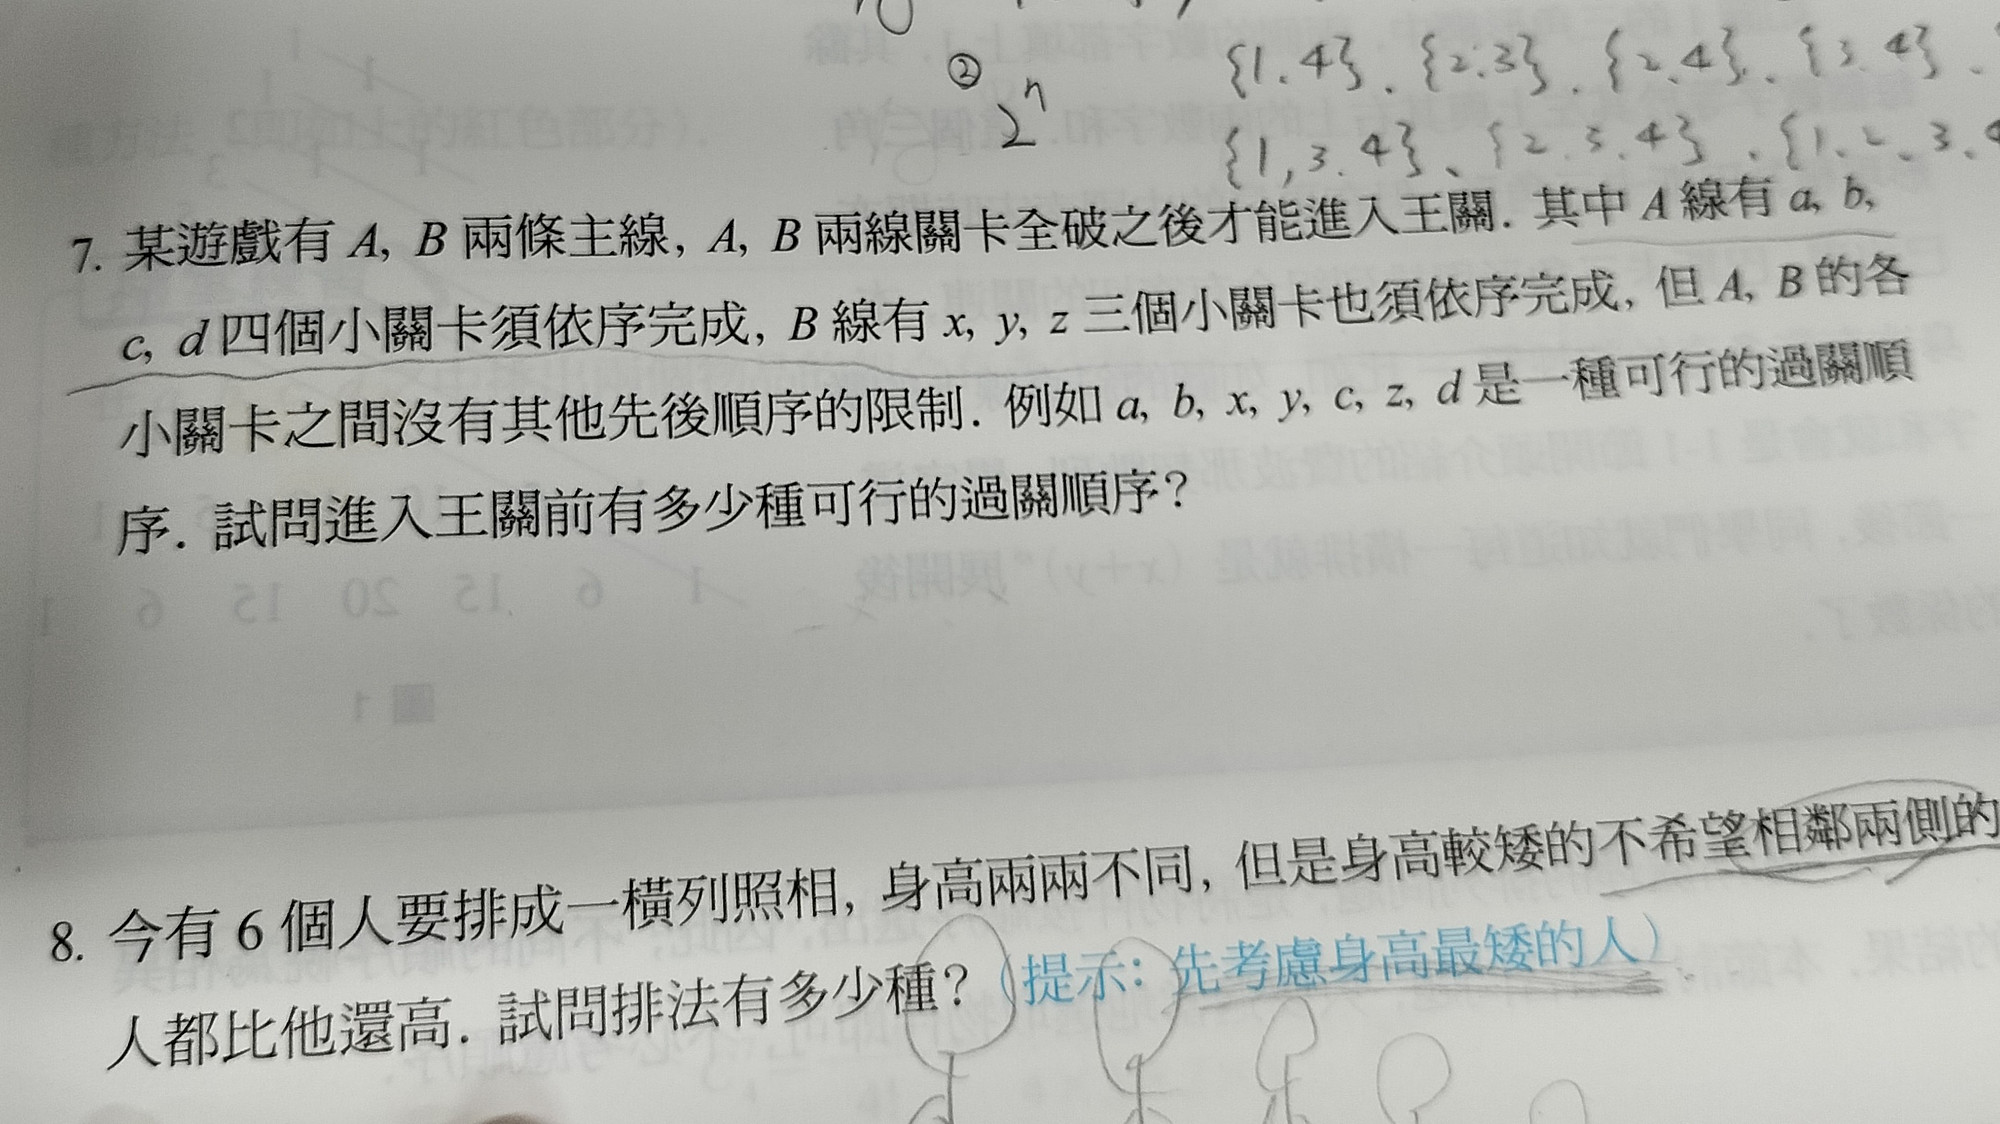 ② {1.4}、{2.3}、{2.4}、{3.4}、
2ⁿ {1,3.4}、{2.3.4}、{1.2.3.4
7. 某遊戲有 A, B 兩條主線, A, B 兩線關卡全破之後才能進入王關. 其中 A 線有 a, b,
c, d 四個小關卡須依序完成, B 線有 x, y, z 三個小關卡也須依序完成, 但 A, B 的各
小關卡之間沒有其他先後順序的限制. 例如 a, b, x, y, c, z, d 是一種可行的過關順
序. 試問進入王關前有多少種可行的過關順序?
8. 今有 6 個人要排成一橫列照相, 身高兩兩不同, 但是身高較矮的不希望相鄰兩側的
人都比他還高. 試問排法有多少種? (提示: 先考慮身高最矮的人)